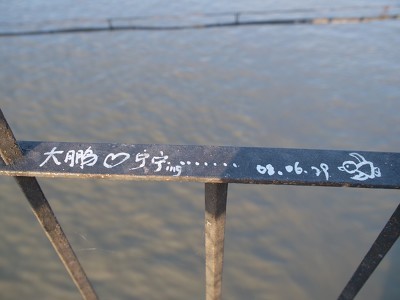 大鹏♡宁宁ing....... 08.06.29